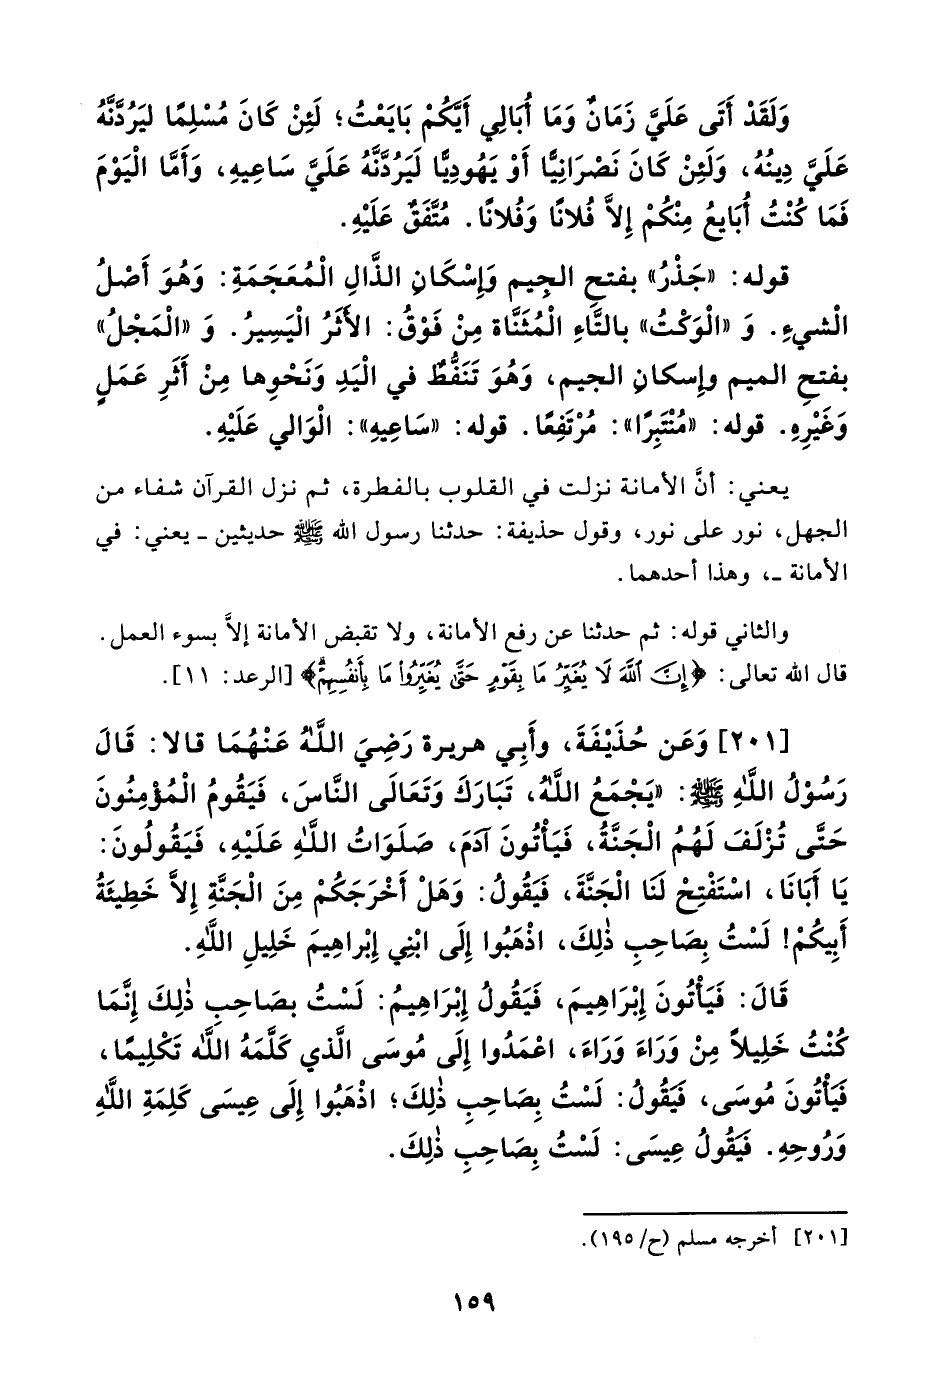 وَلَقَدْ أَتَى عَلَيَّ زَمَانٌ وَمَا أُبَالِي أَيَّكُمْ بَايَعْتُ؛ لَئِنْ كَانَ مُسْلِمًا لَيَرُدَّنَّهُ
عَلَيَّ دِينُهُ، وَلَئِنْ كَانَ نَصْرَانِيًّا أَوْ يَهُودِيًّا لَيَرُدَّنَّهُ عَلَيَّ سَاعِيهِ، وَأَمَّا الْيَوْمَ
فَمَا كُنْتُ أُبَايعُ مِنْكُمْ إِلاَّ فُلانًا وَفُلانًا. مُتَّفَقٌ عَلَيْهِ.
قوله: «جَذْرُ» بفتح الجِيم وَإِسْكَانِ الذَّالِ الْمُعَجَمَةِ: وَهُوَ أَصْلُ
الْشيءِ. وَ «الْوَكْتُ» بالتَّاءِ الْمُثَنَّاة مِنْ فَوْقُ: الأَثَرُ الْيَسِيرُ. وَ «الْمَجْلُ»
بفتح الميم وإسكان الجيم، وَهُوَ تَنَفُّطٌ في الْيَدِ وَنَحْوِها مِنْ أَثَرِ عَمَلٍ
وَغَيْرِهِ. قوله: «مُنْتَبِرًا»: مُرْتَفِعًا. قوله: «سَاعِيهِ»: الْوَالي عَلَيْهِ.
يعني: أنَّ الأمانة نزلت في القلوب بالفطرة، ثم نزل القرآن شفاء من
الجهل، نور على نور، وقول حذيفة: حدثنا رسول الله ﷺ حديثين ـ يعني: في
الأمانة ـ، وهذا أحدهما.
والثاني قوله: ثم حدثنا عن رفع الأمانة، ولا تقبض الأمانة إلاَّ بسوء العمل.
قال الله تعالى: ﴿إِنَّ ٱللَّهَ لَا يُغَيِّرُ مَا بِقَوْمٍ حَتَّىٰ يُغَيِّرُوا۟ مَا بِأَنفُسِهِمْ﴾ [الرعد: ١١].
[٢٠١] وَعَن حُذَيْفَةَ، وأَبي هريرة رَضِيَ اللَّهُ عَنْهُمَا قالا: قَالَ
رَسُوْلُ اللَّهِ ﷺ: «يَجْمَعُ اللَّهُ، تَبَارَكَ وَتَعَالَى النَّاسَ، فَيَقُومُ الْمُؤْمِنُونَ
حَتَّى تُزْلَفَ لَهُمُ الْجَنَّةُ، فَيَأْتُونَ آدَمَ، صَلَوَاتُ اللَّهِ عَلَيْهِ، فَيَقُولُونَ:
يَا أَبَانَا، اسْتَفْتِحْ لَنَا الْجَنَّةَ، فَيَقُولُ: وَهَلْ أَخْرَجَكُمْ مِنَ الْجَنَّةِ إِلاَّ خَطِيئَةُ
أَبِيكُمْ! لَسْتُ بِصَاحِبِ ذٰلِكَ، اذْهَبُوا إِلَى ابْنِي إِبْراهِيمَ خَلِيلِ اللَّهِ.
قَالَ: فَيَأْتُونَ إِبْرَاهِيمَ، فَيَقُولُ إِبْرَاهِيمُ: لَسْتُ بصَاحِبِ ذٰلِكَ إِنَّمَا
كُنْتُ خَلِيلاً مِنْ وَرَاءَ وَرَاءَ، اعْمَدُوا إِلَى مُوسَى الَّذي كَلَّمَهُ اللَّه تَكْلِيمًا،
فَيَأْتُونَ مُوسَى، فَيَقُولُ: لَسْتُ بِصَاحِبِ ذٰلِكَ؛ اذْهَبُوا إِلَى عِيسَى كَلِمَةِ اللَّهِ
وَرُوحِهِ. فَيَقُولُ عِيسَى: لَسْتُ بِصَاحِبِ ذٰلِكَ.
[٢٠١] أخرجه مسلم (ح/١٩٥).
١٥٩